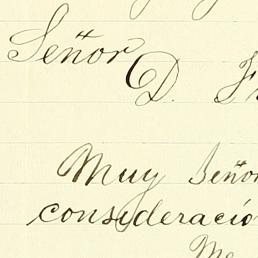 Señor
D. F
Muy Señor
consideració
Me